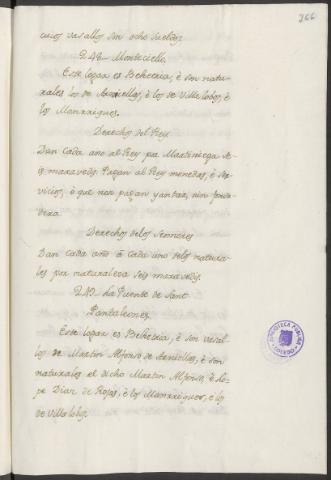 366
cuios vasallos son ocho sueldos.
248. Monteciello.
Este logar es Behetria, è son natu-
rales los de , è los de Villalobos, è
los Manrriques.
Derechos del Rey
Dan cada año al Rey por Martiniega se-
is maravedis. Pagan al Rey monedas, è ser-
vicios, è que non pagan yantar, nin fonsa-
dera.
Derechos delos Sennores
Dan cada año à cada uno delos natura-
les por naturaleza seis maravedis.
249. La Puente de Sant
Pantaleones
Este logar es Behetria, è son vasal-
los de Martin Alfonso de , è son
naturales el dicho Martin Alfonso, è Lo-
pe Diaz de Rojas, è los Manrriques, è los
de Villalobos.
BIBLIOTECA PUBLICA
TOLEDO